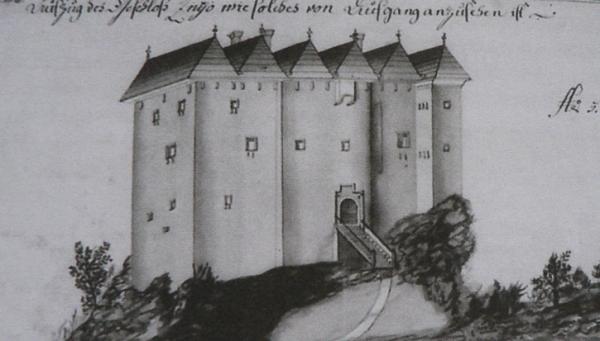 Auffzug des Schloß Enyo wie solches von Auffgang anzusehen ist
N 3.